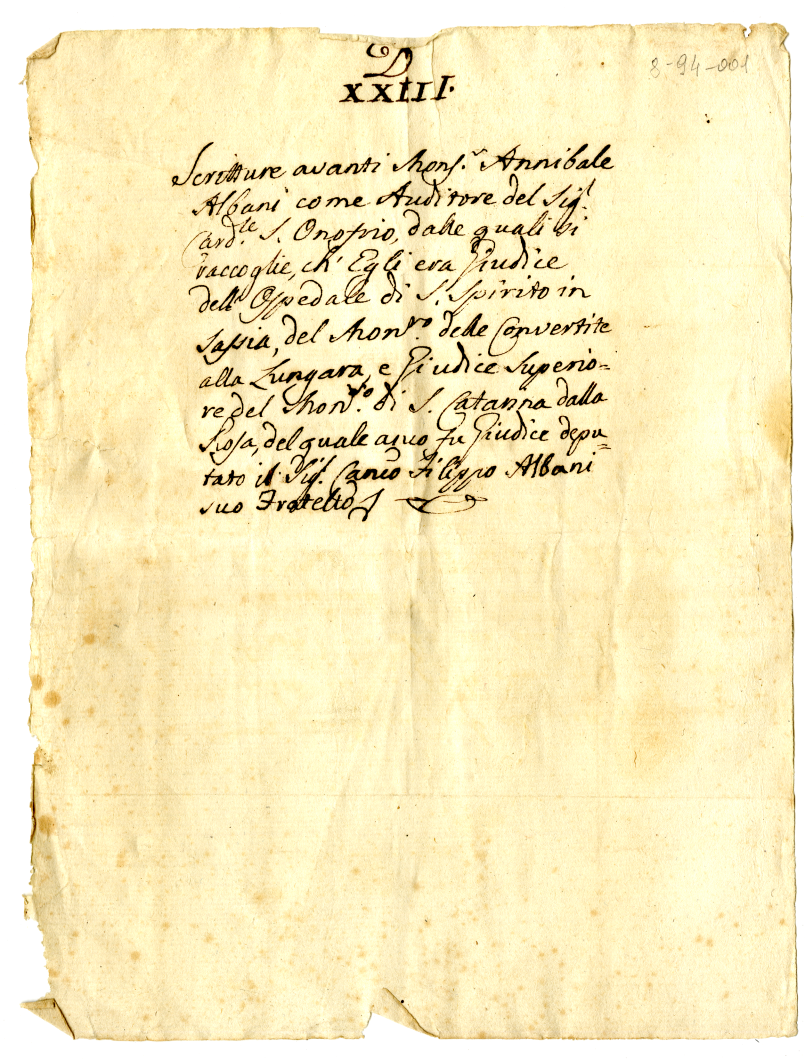 D
XXIII.
8-94-001
Scritture avanti Mons.r Annibale
Albani come Auditore del Sig.r
Card.le S. Onofrio, dalle quali si
raccoglie, ch' Egli era Giudice
dell' Ospedale di S. Spirito in
Sassia, del Mon.ro delle Convertite
alla Lungara, e Giudice Superio=
re del Mon.ro di S. Catarina dalla
Rosa, del quale anco fu Giudice depu=
tato il Sig.r Canco Filippo Albani
suo Fratello